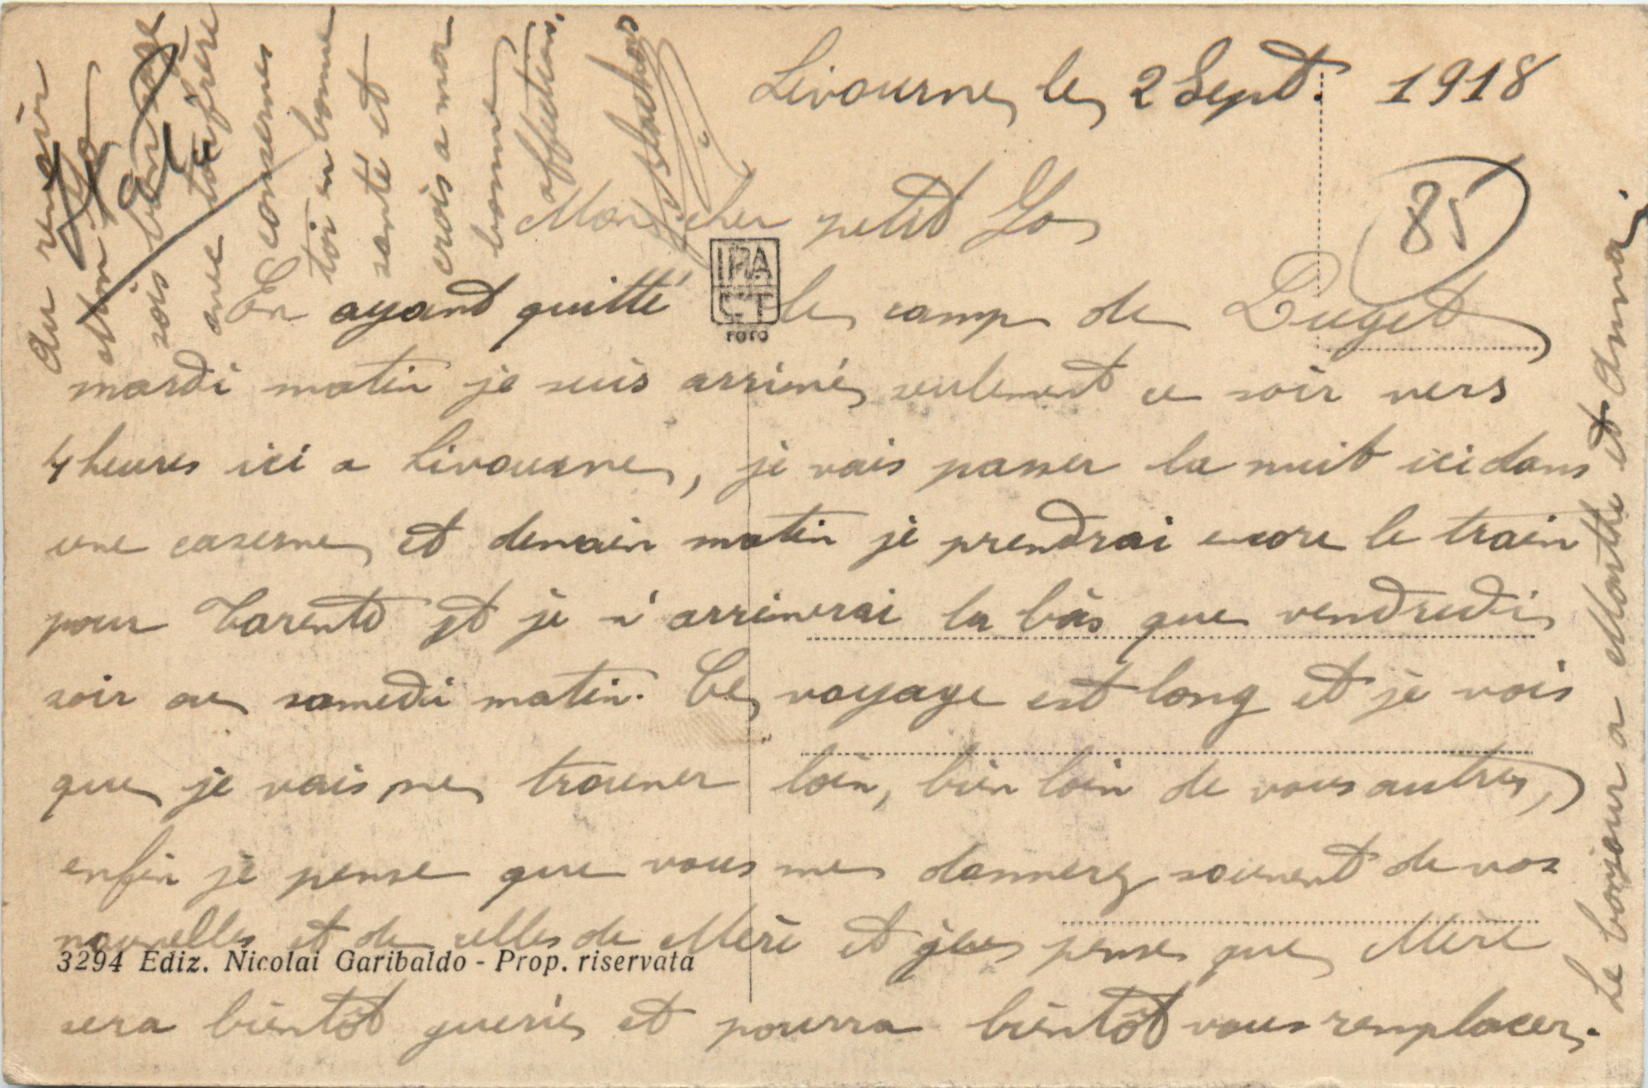 Livourne le 2 Sept. 1918
85
Mon cher petit Jo
En ayant quitté le camp de Puget
mardi matin je suis arrivé seulement ce soir vers
4 heures ici a Livourne, je vais passer la nuit ici dans
une caserne et demain matin je prendrai encore le train
pour Tarente et je n'arriverai la bàs que vendredi
soir ou samedi matin. Ce voyage est long et je vois
que je vais me trouver loin, bien loin de vous autres,
enfin je pense que vous me donnerez souvent de vos
nouvelles et de celles de Mère et je pense que Mère
sera bientôt guerie et pourra bientôt vous remplacer.
Le bonjour a Marthe et Anna
Au revoir
mon Jo
sois bien sage
avec ta frère
conserves
toi en bonne
santé et
crois a mon
bonne
affection.
IPA
CT
FOTO
3294 Ediz. Nicolai Garibaldo - Prop. riservata